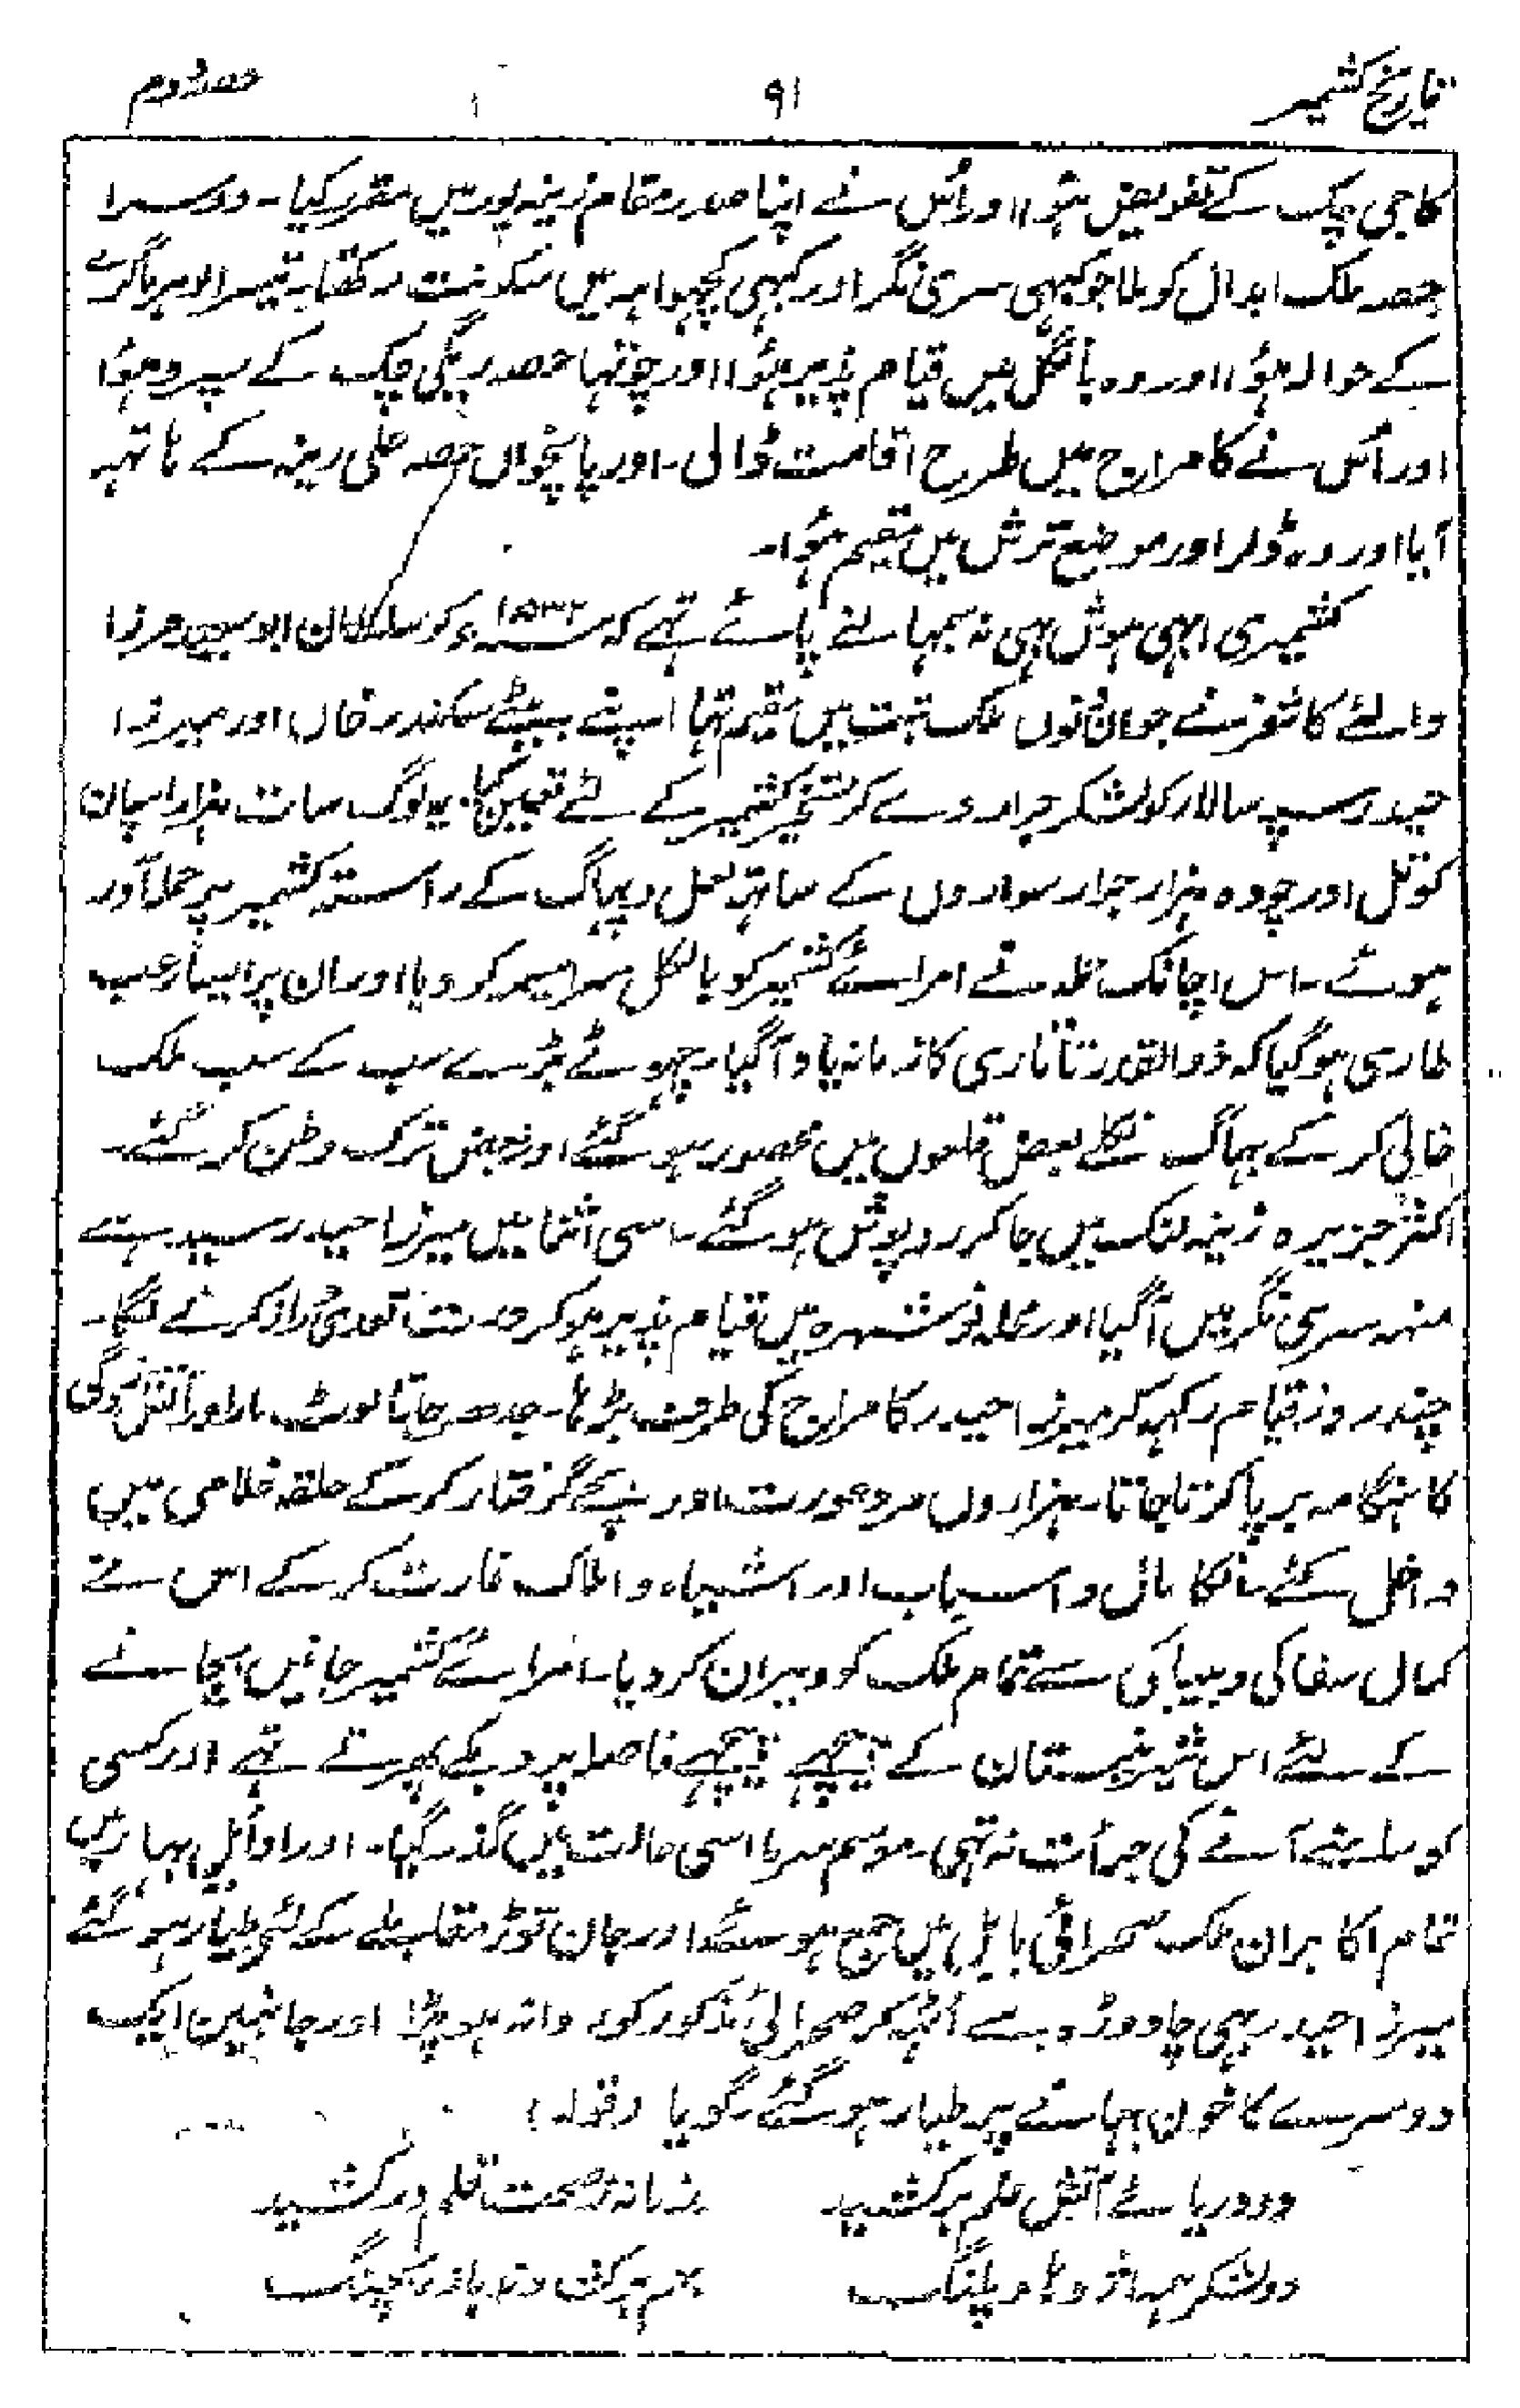 تاریخ کشمیر ۹۱ حصہ دوم
کاجی چک کے تفویض ہؤا اور اُس نے اپنا صدر مقام زینہ پور میں مقرر کیا۔ دوسرا
حصہ ملک ابدال کو ملا جو کبہی سری نگر اور کبہی کچہوامہ میں سکونت رکھتا۔ تیسرا لوہر ماگرے
کے حوالہ ہؤا اور وہ بانگل میں قیام پذیر ہؤا اور چوتہا حصہ ریگی چک کے سپرد ہوا
اور اُس نے کامراج میں طرح اقامت ڈالی۔ اور پانچواں حصہ علی رینہ کے ہاتہہ
آیا اور وہ ڈلر اور موضع ترش میں مقیم ہؤا۔
کشمیری ابہی ہوش بہی نہ سمبہالنے پائے تہے کہ ۱۵۳۲ء کو سلطان ابو سعید مرزا
والئے کاشغر نے جو ان دنوں ملک تبت میں مقیم تہا اپنے بیٹے سکندر خاں اور میرزا
حیدر سپہ سالار کو لشکر جرار دے کر تسخیر کشمیر کے لئے تعین کیا۔ یہ لوگ سات ہزار اسپان
کوتل اور چودہ ہزار جرار سواروں کے ساتہہ لعل و پہاگ کے راستہ کشمیر پر حملہ آور
ہوئے۔ اس اچانک حملہ نے امرائے کشمیر کو بالکل سراسیمہ کر دیا اور ان پر ایسا رعب
طاری ہو گیا کہ ذوالقدر تاتاری کا زمانہ یاد آگیا۔ چہوٹے بڑے سب کے سب ملک
خالی کر کے بہاگ نکلے بعض قلعوں میں محصور ہو گئے اور بعض ترک وطن کر گئے۔
اکثر جزیرہ زینہ لنک میں جا کر روپوش ہو گئے۔ اسی اثنا میں میرزا حیدر سیدہے
منہہ سری نگر میں آگیا اور محلہ نوشہرہ میں قیام پذیر ہو کر دست تعدی دراز کرنے لگا۔
چند روز قیام رکہہ کر میرزا حیدر کامراج کی طرف بڑہا۔ جدھر جاتا لوٹ مار اور آتش زدگی
کا ہنگامہ برپا کرتا جاتا۔ ہزاروں مرد عورت اور بچے گرفتار کر کے حلقہ غلامی میں
داخل کئے۔ انکا مال و اسباب اور اشیاء و املاک غارت کر کے اس نے
کمال سفاکی و بیباکی سے تمام ملک کو ویران کر دیا۔ امرائے کشمیر جانیں بچانے
کے لئے اس شیر نیستان کے پیچہے پیچہے فاصلہ پر دبکے پھرتے تہے اور کسی
کو سامنے آنے کی جرأت نہ تہی۔ موسم سرما اسی حالت میں گذر گیا۔ اور اوائیل بہار میں
تمام اکابران ملک صحرائی بابل میں جمع ہوئے اور جان توڑ مقابلے کے لئے طیار ہو گئے
میرزا حیدر بہی چاوورہ سے اُٹہہ کر صحرائے مذکور کو روانہ ہو پڑا اور جانبین ایک
دوسرے کا خون بہانے پر طیار ہو گئے۔ گویا (قولہ)
دو دریائے آتش علم بر کشید زمانہ ز صحت قلم در کشید
دو لشکر